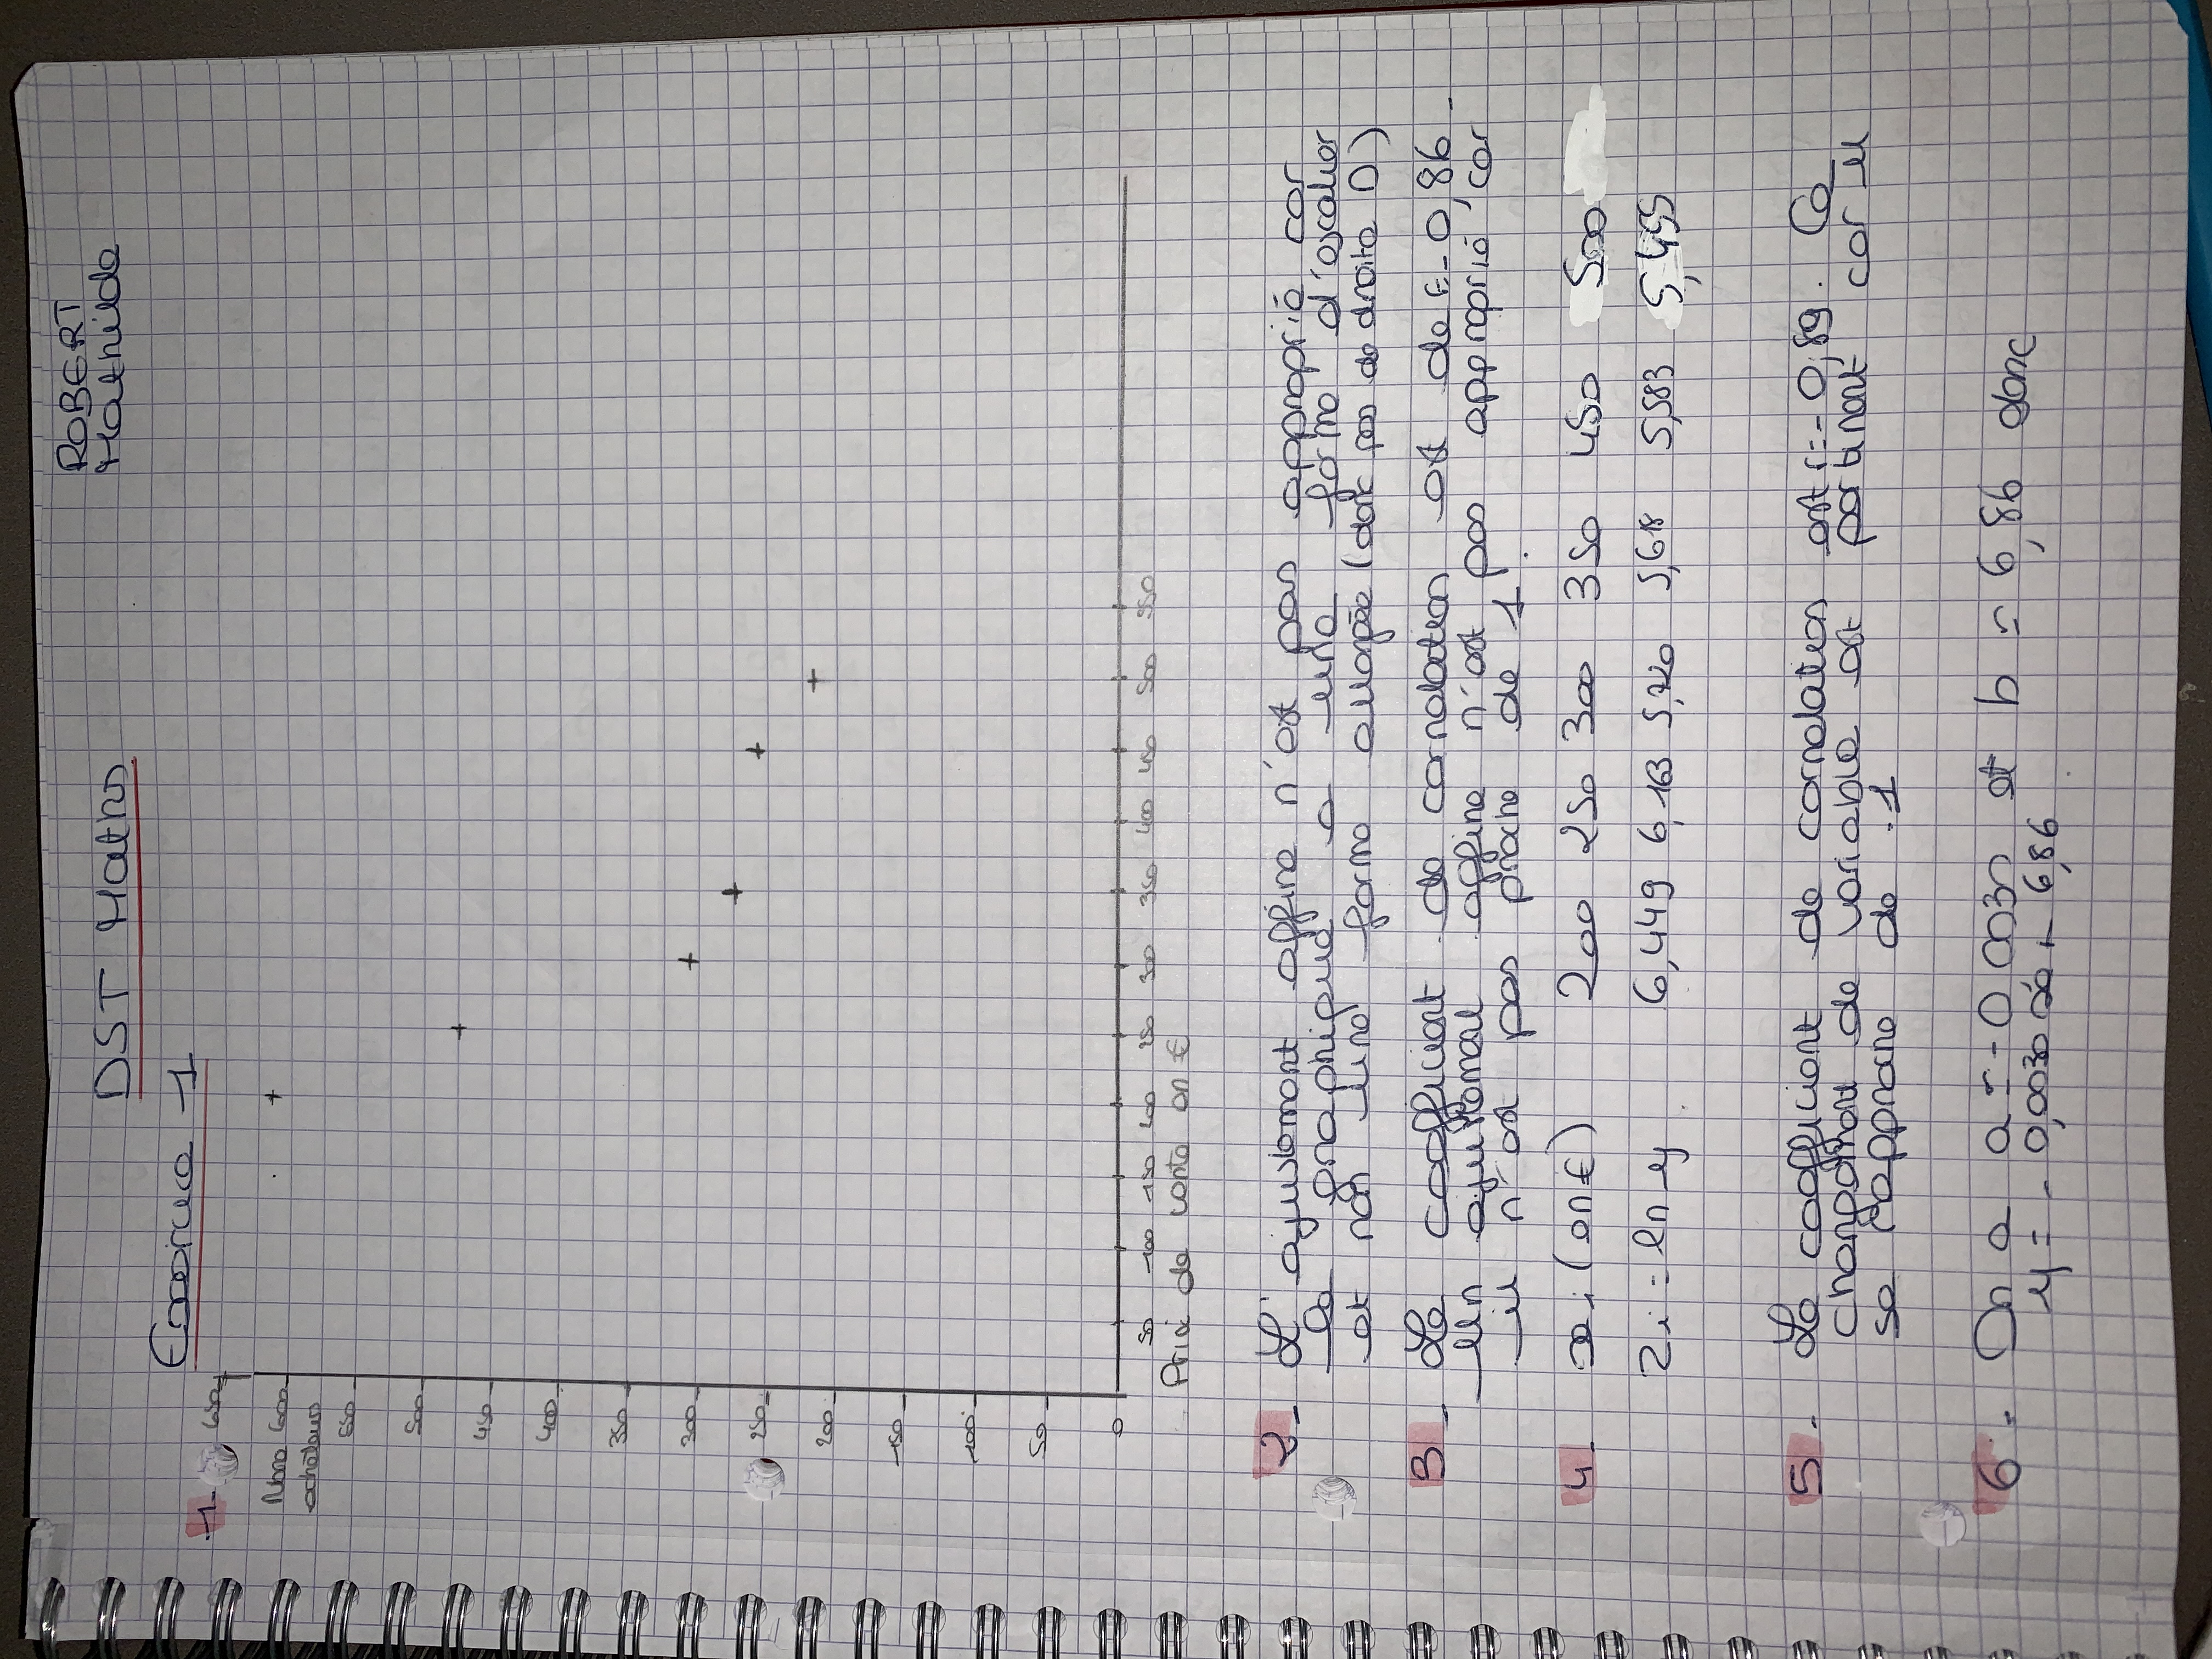 ROBERT
Mathilde
DST Maths
Exercice 1
1-
650
Nbre 600
acheteurs
550
500
450
400
350
300
250
200
150
100
50
0
50 100 150 200 250 300 350 400 450 500 550
Prix de vente en €
2- L'ajustement affine n'est pas approprié car
le graphique a une forme d'escalier
et non une forme allongée (donc pas de droite D)
3- Le coefficient de correlation est de r=-0,86.
Un ajustement affine n'est pas approprié car
il n'est pas proche de 1.
4- xi (en €) 200 250 300 350 450 500
Zi = ln y 6,449 6,163 5,720 5,618 5,583 5,455
5- Le coefficient de correlation est r=-0,89. Ce
changement de variable est pertinent car il
se rapproche de -1
6- On a a = -0,0030 et b = 6,86 donc
y = -0,0030 x + 6,86